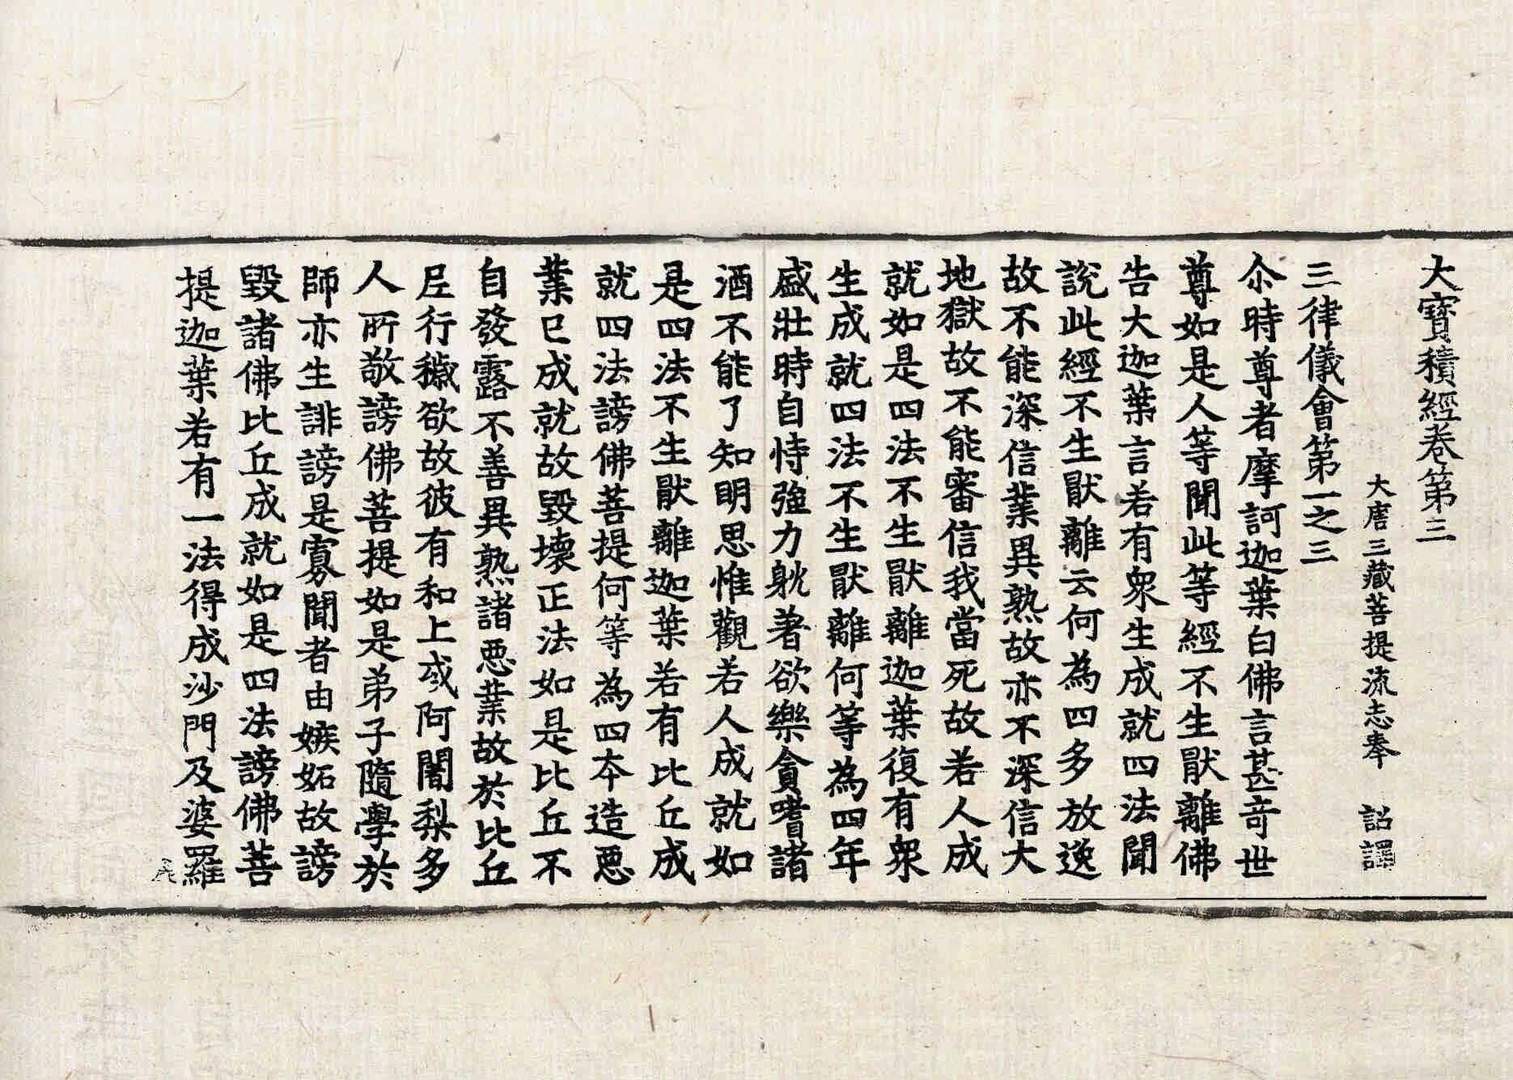 大寶積經卷第三
大唐三藏菩提流志奉 詔譯
三律儀會第一之三
尒時尊者摩訶迦葉白佛言甚奇世
尊如是人等聞此等經不生猒離佛
告大迦葉言若有衆生成就四法聞
說此經不生猒離云何為四多放逸
故不能深信業異熟故亦不深信大
地獄故不能審信我當死故若人成
就如是四法不生猒離迦葉復有衆
生成就四法不生猒離何等為四年
盛壯時自恃強力躭著欲樂貪嗜諸
酒不能了知明思惟觀若人成就如
是四法不生猒離迦葉若有比丘成
就四法謗佛菩提何等為四夲造惡
業已成就故毀壞正法如是比丘不
自發露不善異熟諸惡業故於比丘
尼行穢欲故彼有和上或阿闍梨多
人所敬謗佛菩提如是弟子隨學於
師亦生誹謗是寡聞者由嫉妬故謗
毀諸佛比丘成就如是四法謗佛菩
提迦葉若有一法得成沙門及婆羅